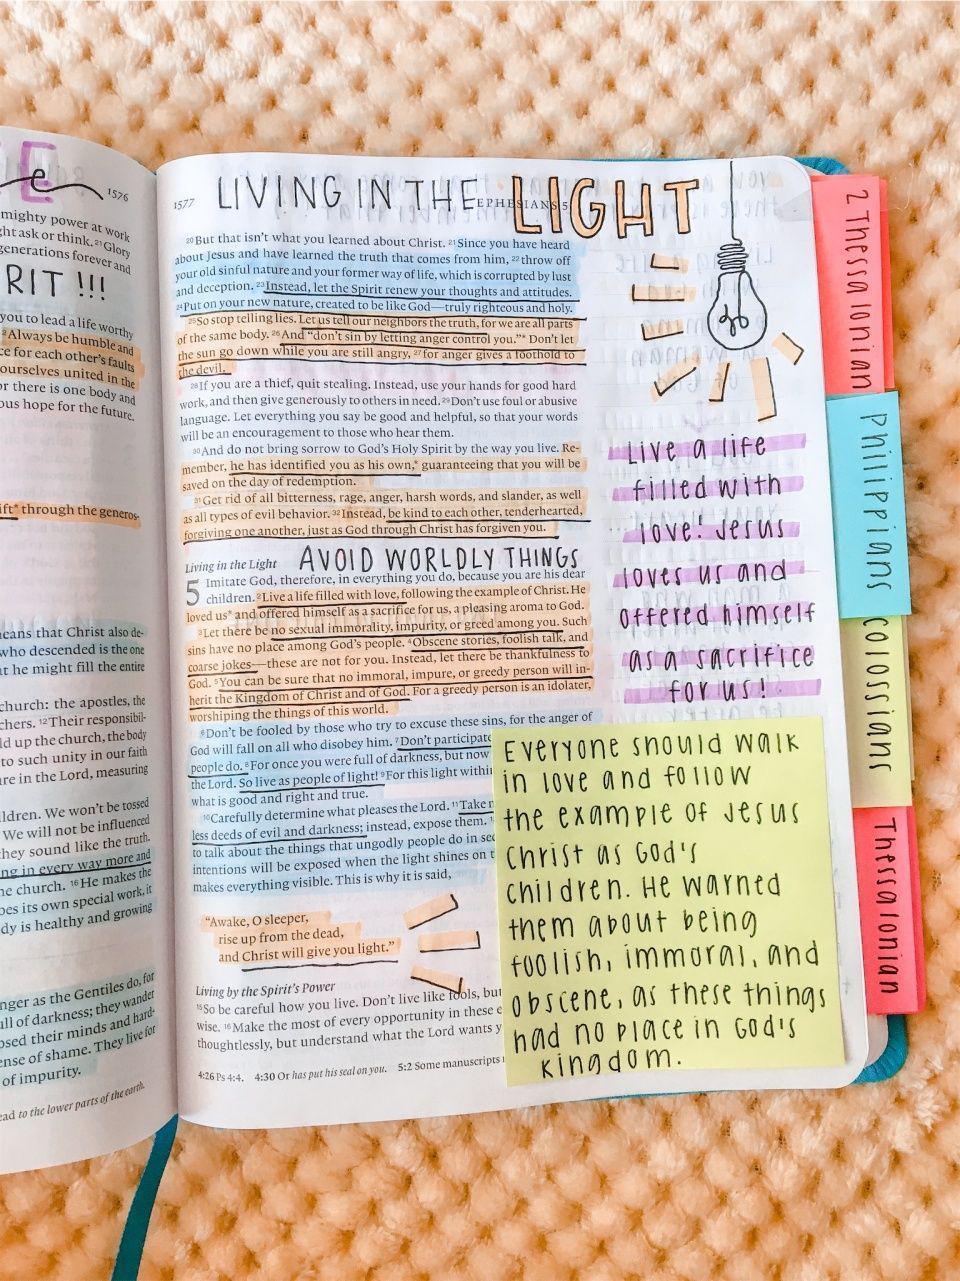 e
1576
mighty power at work
ght ask or think. 21Glory
generations forever and
RIT !!!
you to lead a life worthy
2Always be humble and
ce for each other's faults
ourselves united in the
or there is one body and
ous hope for the future.
ift* through the generos-
eans that Christ also de-
who descended is the one
at he might fill the entire
church: the apostles, the
chers. 12Their responsibil-
ld up the church, the body
to such unity in our faith
re in the Lord, measuring
ldren. We won't be tossed
We will not be influenced
they sound like the truth.
ng in every way more and
he church. 16He makes the
oes its own special work, it
dy is healthy and growing
nger as the Gentiles do, for
ull of darkness; they wander
osed their minds and hard-
ense of shame. They live for
of impurity.
ead to the lower parts of the earth.
1577
LIVING IN THE LIGHT
EPHESIANS 5
20But that isn't what you learned about Christ. 21Since you have heard
about Jesus and have learned the truth that comes from him, 22throw off
your old sinful nature and your former way of life, which is corrupted by lust
and deception. 23Instead, let the Spirit renew your thoughts and attitudes.
24Put on your new nature, created to be like God—truly righteous and holy.
25So stop telling lies. Let us tell our neighbors the truth, for we are all parts
of the same body. 26And "don't sin by letting anger control you."* Don't let
the sun go down while you are still angry, 27for anger gives a foothold to
the devil.
28If you are a thief, quit stealing. Instead, use your hands for good hard
work, and then give generously to others in need. 29Don't use foul or abusive
language. Let everything you say be good and helpful, so that your words
will be an encouragement to those who hear them.
30And do not bring sorrow to God's Holy Spirit by the way you live. Re-
member, he has identified you as his own,* guaranteeing that you will be
saved on the day of redemption.
31Get rid of all bitterness, rage, anger, harsh words, and slander, as well
as all types of evil behavior. 32Instead, be kind to each other, tenderhearted,
forgiving one another, just as God through Christ has forgiven you.
Living in the Light AVOID WORLDLY THINGS
5 Imitate God, therefore, in everything you do, because you are his dear
children. 2Live a life filled with love, following the example of Christ. He
loved us* and offered himself as a sacrifice for us, a pleasing aroma to God.
3Let there be no sexual immorality, impurity, or greed among you. Such
sins have no place among God's people. 4Obscene stories, foolish talk, and
coarse jokes—these are not for you. Instead, let there be thankfulness to
God. 5You can be sure that no immoral, impure, or greedy person will in-
herit the Kingdom of Christ and of God. For a greedy person is an idolater,
worshiping the things of this world.
6Don't be fooled by those who try to excuse these sins, for the anger of
God will fall on all who disobey him. 7Don't participate
people do. 8For once you were full of darkness, but now
the Lord. So live as people of light! 9For this light within
what is good and right and true.
10Carefully determine what pleases the Lord. 11Take n
less deeds of evil and darkness; instead, expose them.
to talk about the things that ungodly people do in sec
intentions will be exposed when the light shines on t
makes everything visible. This is why it is said,
"Awake, O sleeper,
rise up from the dead,
and Christ will give you light."
Living by the Spirit's Power
15So be careful how you live. Don't live like fools, but
wise. 16Make the most of every opportunity in these e
thoughtlessly, but understand what the Lord wants y
4:26 Ps 4:4. 4:30 Or has put his seal on you. 5:2 Some manuscripts
Live a life
filled with
love! Jesus
loves us and
offered himself
as a sacrifice
for us!
Everyone should walk
in love and follow
the example of Jesus
Christ as God's
children. He warned
them about being
foolish, immoral, and
obscene, as these things
had no place in God's
kingdom.
2 Thessalonian
Philippians
Colossians
Thessalonian